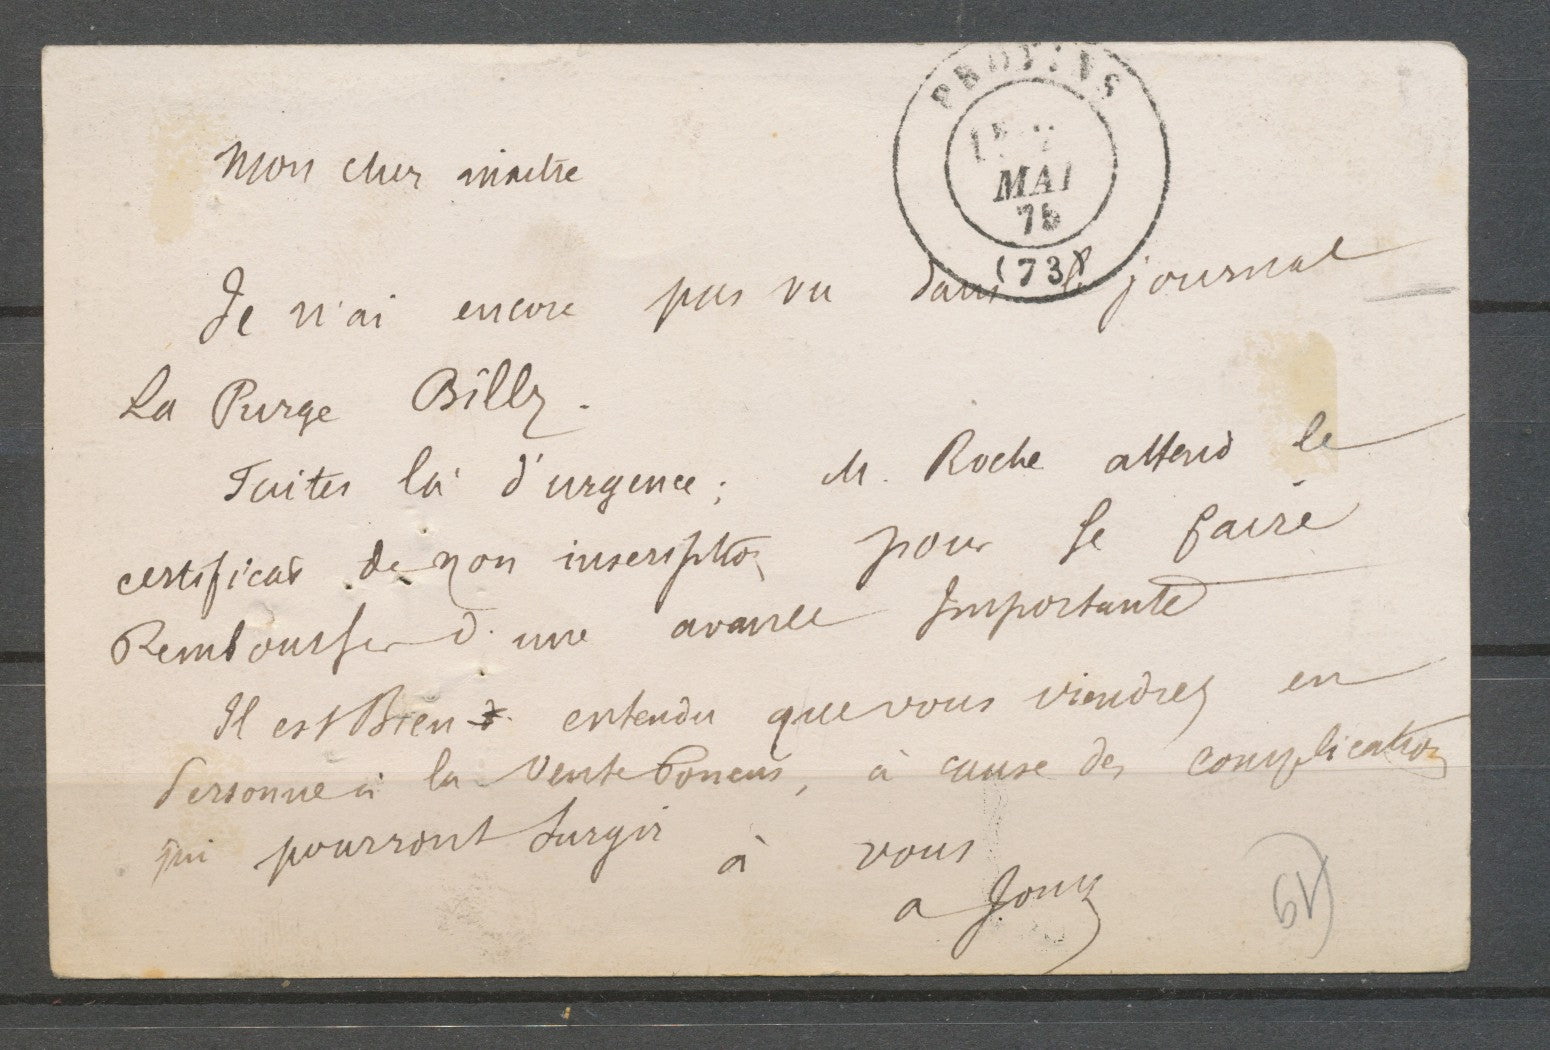 PROVINS
1E
MAI
75
(73)
Mon cher maitre
Je n'ai encore pas vu dans le journal
La Purge Billy.
Faites la d'urgence; M. Roche attend le
certificat de non inscription pour se faire
Rembourser d'une avance Importante
Il est Bien entendu que vous viendrez en
Personne à la vente, à cause des complications
qui pourront surgir
à vous
a Jouy